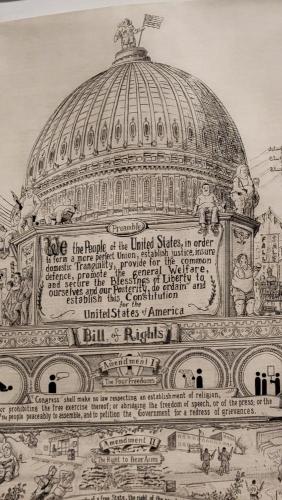 Preamble
We the People of the United States, in order
to form a more perfect Union, establish justice, insure
domestic Tranquility, provide for the common
defence, promote the general Welfare,
and secure the Blessings of Liberty to
ourselves and our Posterity, do ordain and
establish this Constitution
for the
United States of America
Bill of Rights
Amendment I
The Four Freedoms
Congress shall make no law respecting an establishment of religion,
or prohibiting the free exercise thereof; or abridging the freedom of speech, or of the press; or the
the people peaceably to assemble, and to petition the Government for a redress of grievances.
Amendment II
The Right to Bear Arms
of a free State, the right of the